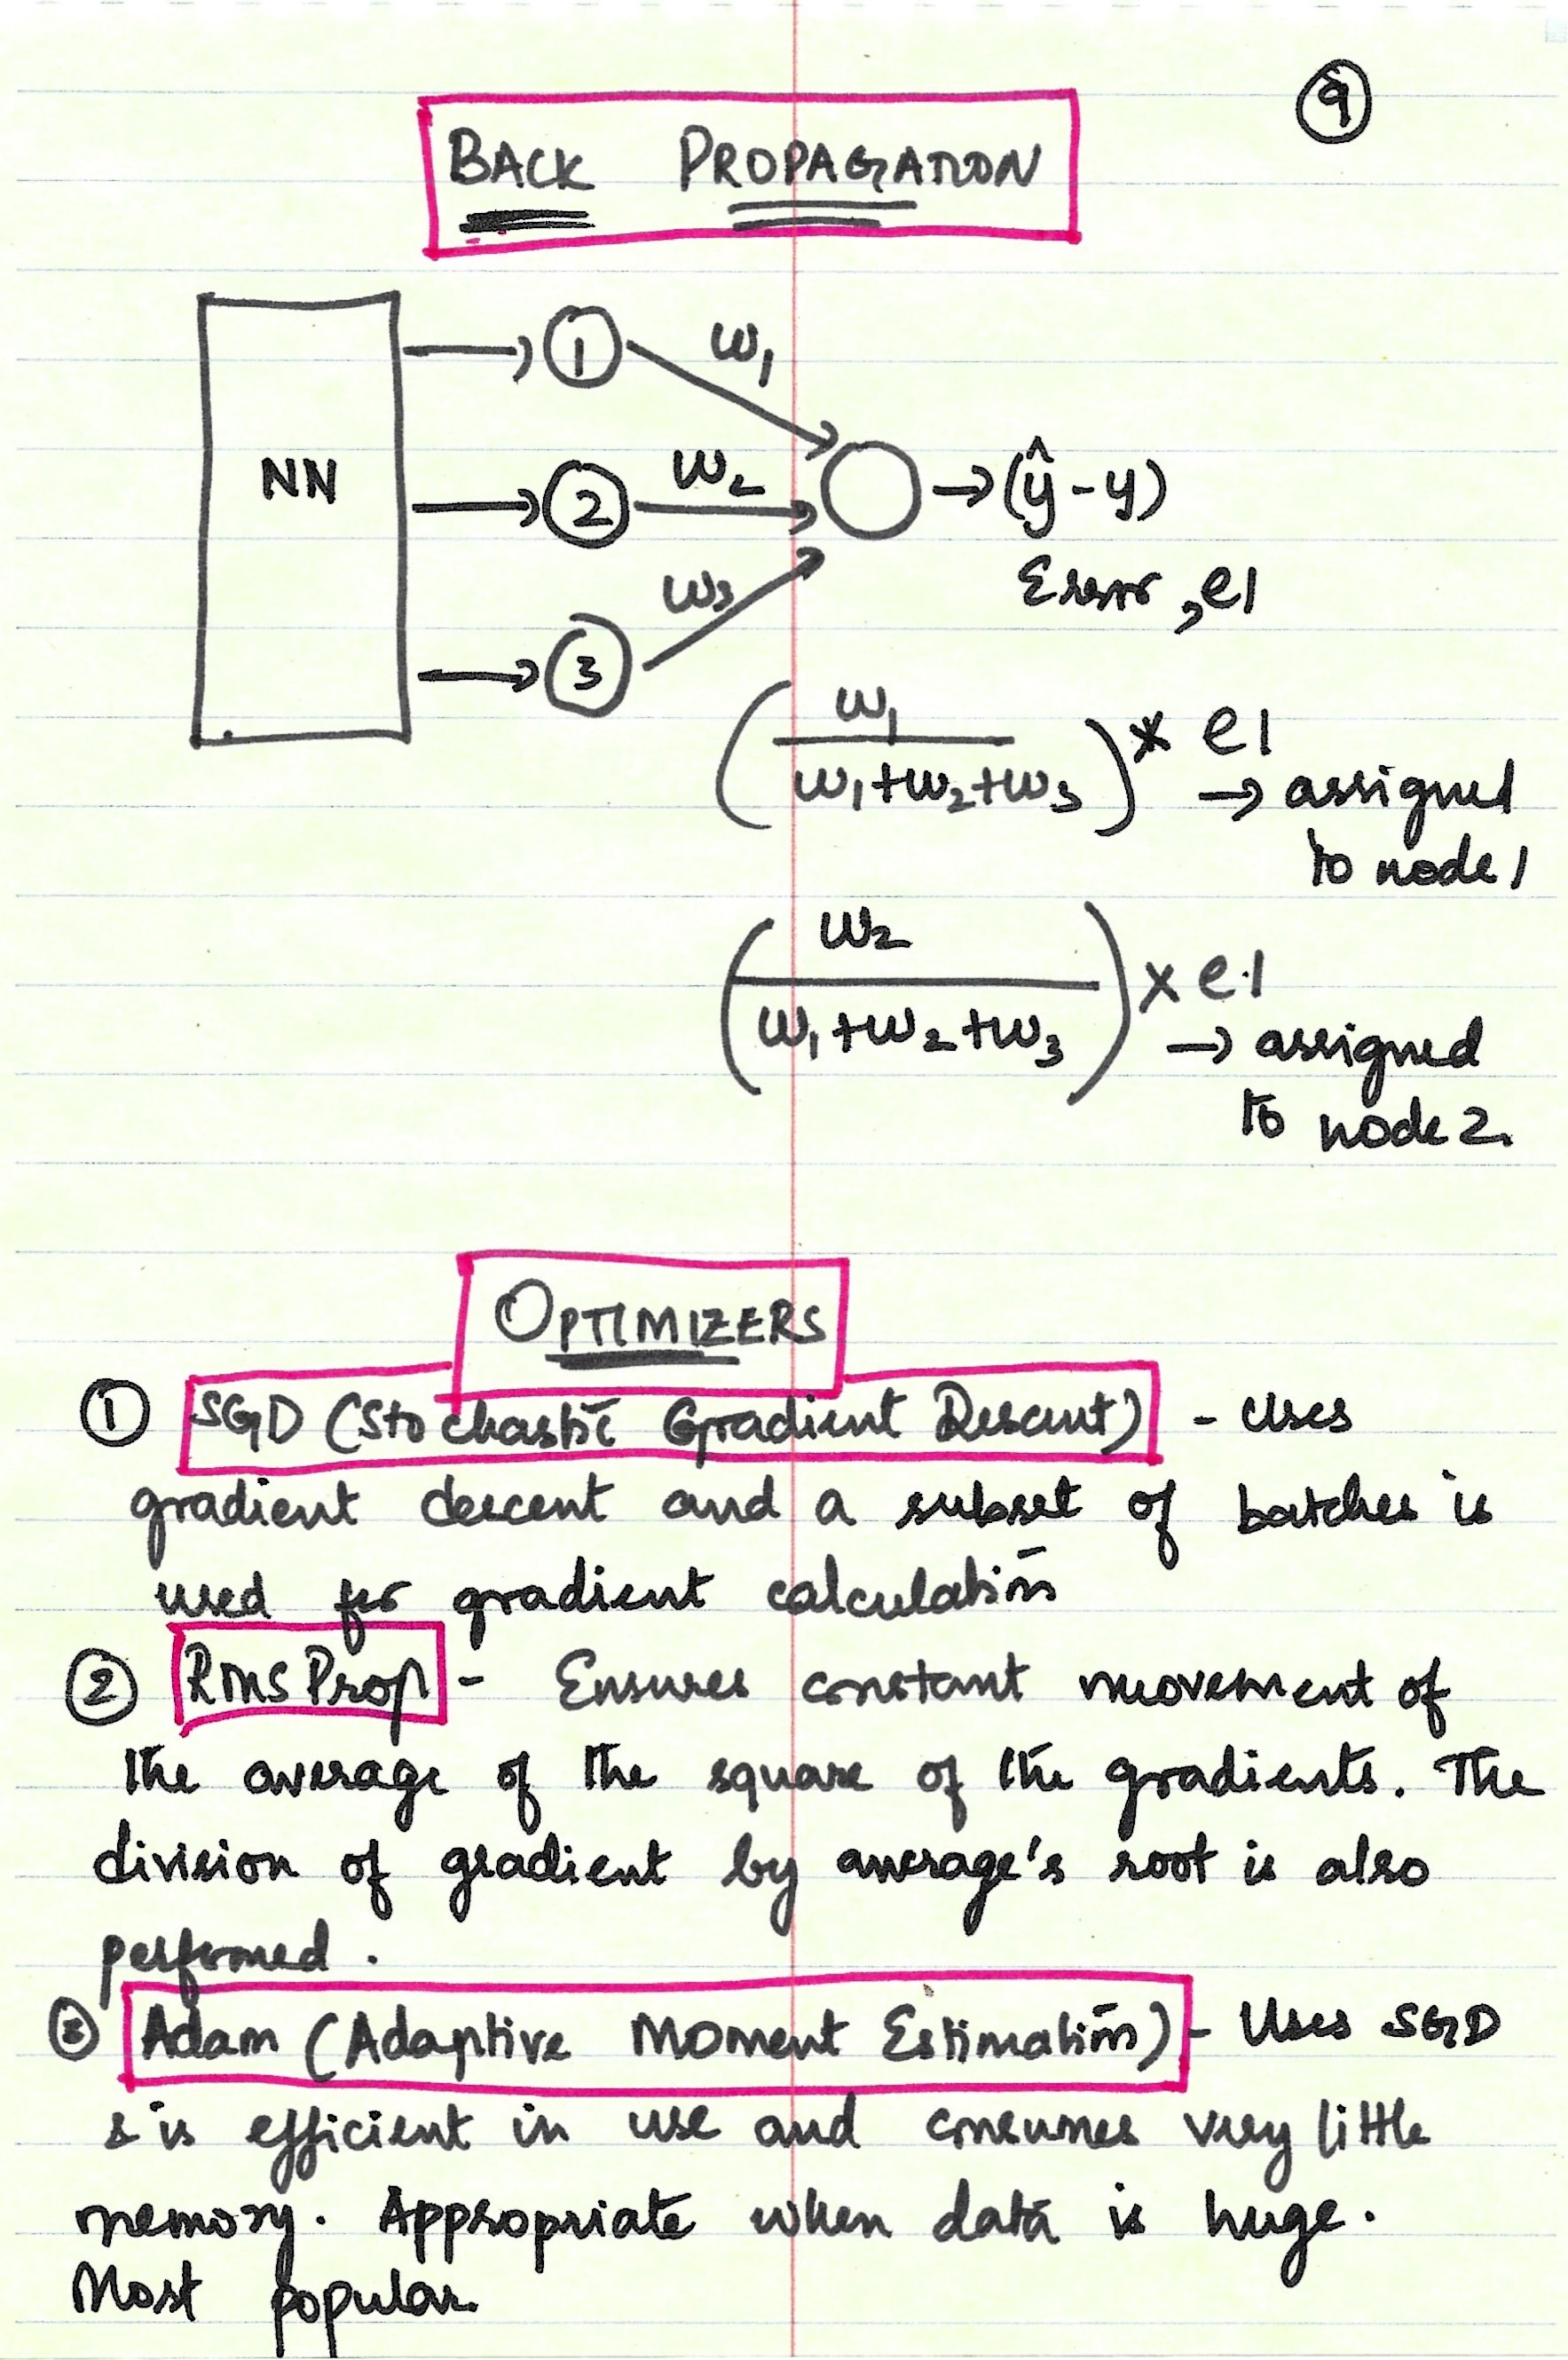 9
BACK PROPAGATION
NN
1
w1
2
w2
3
w3
→(ŷ-y)
Error, e1
(w1/(w1+w2+w3)) * e1
→ assigned
to node 1
(w2/(w1+w2+w3)) x e1
→ assigned
to node 2.
OPTIMIZERS
① SGD (Stochastic Gradient Descent) - Uses
gradient descent and a subset of batches is
used for gradient calculation
② RMS Prop - Ensures constant movement of
the average of the square of the gradients. The
division of gradient by average's root is also
performed.
③ Adam (Adaptive Moment Estimation) - Uses SGD
& is efficient in use and consumes very little
memory. Appropriate when data is huge.
Most popular.